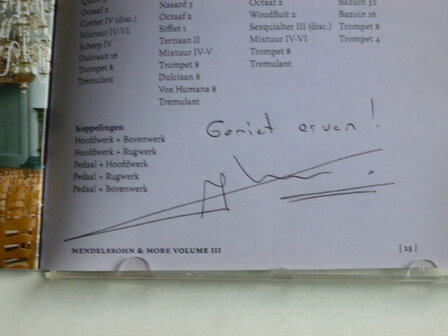 Octaaf 2
Cornet IV (disc.)
Mixtuur IV-VI
Scherp IV
Dulciaan 16
Trompet 8
Tremulant
Nasard 3
Octaaf 2
Sifflet 1
Tertiaan II
Mixtuur IV-V
Trompet 8
Dulciaan 8
Vox Humana 8
Tremulant
Octaaf 2
Woudfluit 2
Sexquialter III (disc.)
Mixtuur IV-VI
Trompet 8
Tremulant
Bazuin 32
Bazuin 16
Trompet 8
Trompet 4
Koppelingen
Hoofdwerk + Bovenwerk
Hoofdwerk + Rugwerk
Pedaal + Hoofdwerk
Pedaal + Rugwerk
Pedaal + Bovenwerk
Geniet ervan!
MENDELSSOHN & MORE VOLUME III
| 15 |